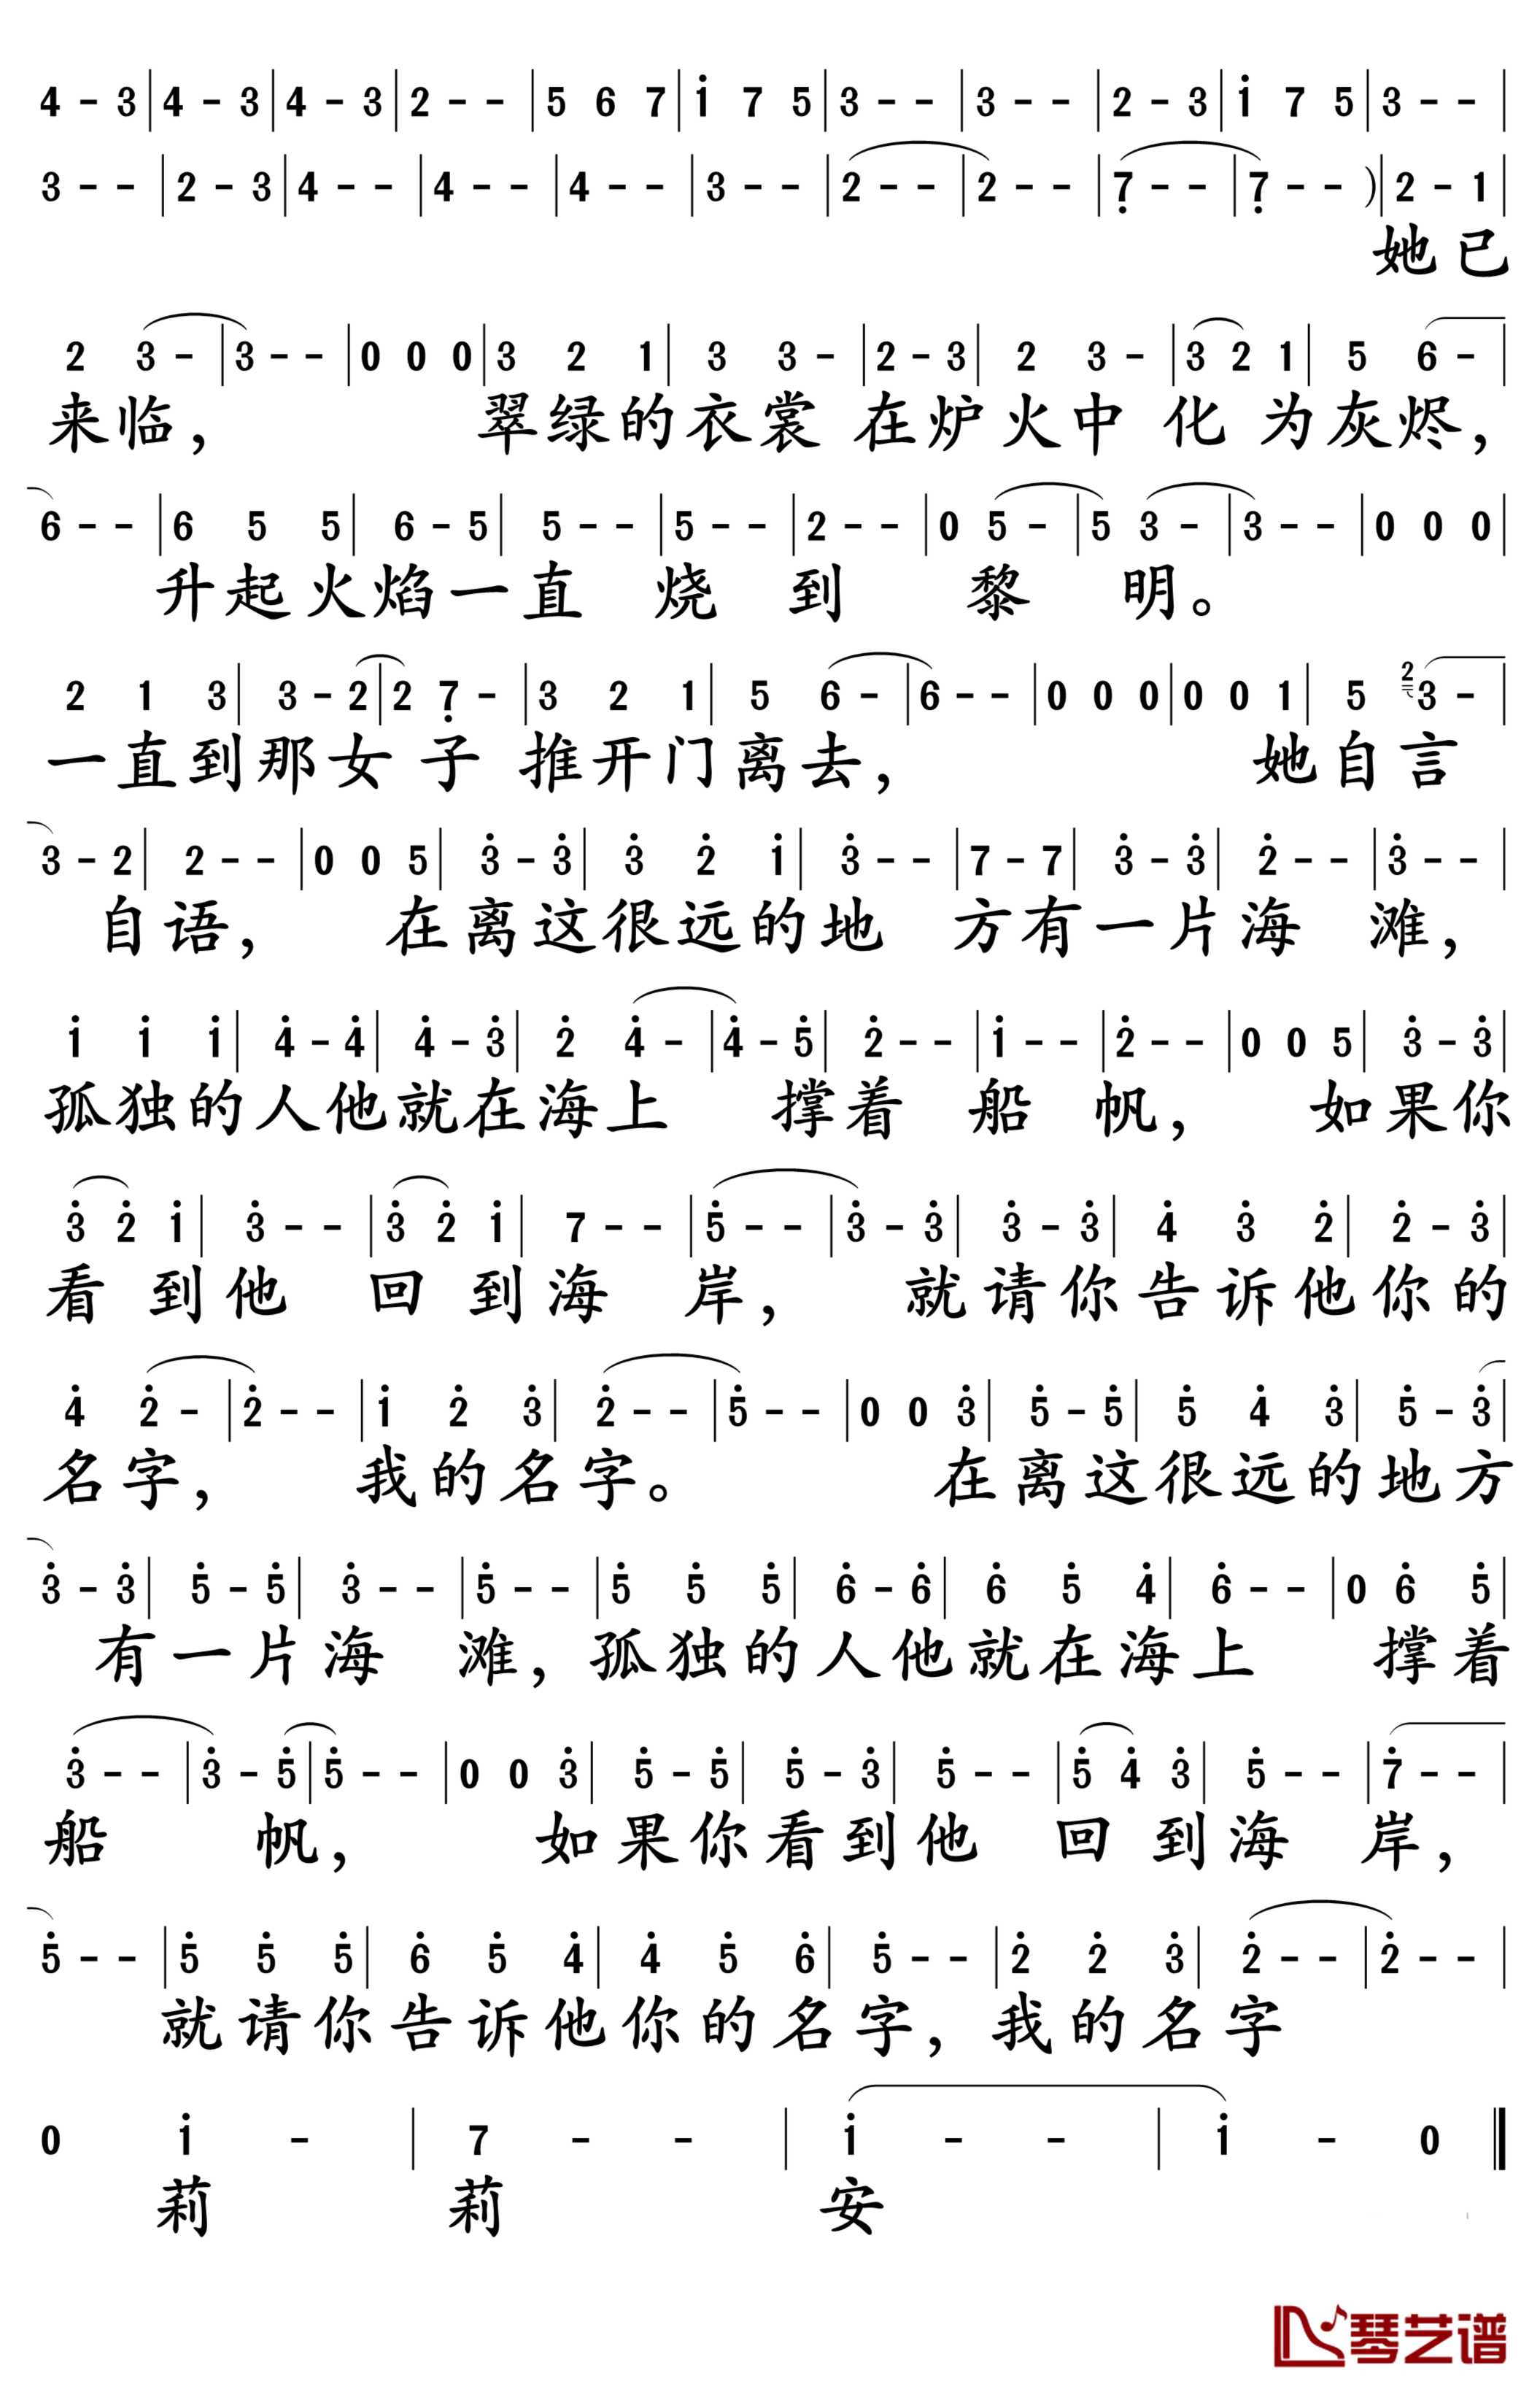 4 - 3 | 4 - 3 | 4 - 3 | 2 - - | 5 6 7 | i̇ 7 5 | 3 - - | 3 - - | 2 - 3 | i̇ 7 5 | 3 - - |
3 - - | 2 - 3 | 4 - - | 4 - - | 4 - - | 3 - - | 2 - - | 2 - - | 7̣ - - | 7̣ - - ) | 2 - 1 |
她已
2 3 - | 3 - - | 0 0 0 | 3 2 1 | 3 3 - | 2 - 3 | 2 3 - | 3 2 1 | 5 6 - |
来临， 翠绿的衣裳 在炉火中 化 为灰烬，
6 - - | 6 5 5 | 6 - 5 | 5 - - | 5 - - | 2 - - | 0 5 - | 5 3 - | 3 - - | 0 0 0 |
升起火焰一直 烧 到 黎 明。
2 1 3 | 3 - 2 | 2 7̣ - | 3 2 1 | 5 6 - | 6 - - | 0 0 0 | 0 0 1 | 5 2 3 - |
一直到那女 子 推开门离去， 她自言
3 - 2 | 2 - - | 0 0 5 | 3̇ - 3̇ | 3̇ 2̇ 1̇ | 3̇ - - | 7 - 7 | 3̇ - 3̇ | 2̇ - - | 3̇ - - |
自语， 在离这很远的地 方有一片海 滩，
1̇ 1̇ 1̇ | 4̇ - 4̇ | 4̇ - 3̇ | 2̇ 4̇ - | 4̇ - 5̇ | 2̇ - - | 1̇ - - | 2̇ - - | 0 0 5 | 3̇ - 3̇ |
孤独的人他就在海上 撑着 船 帆， 如果你
3̇ 2̇ 1̇ | 3̇ - - | 3̇ 2̇ 1̇ | 7 - - | 5̇ - - | 3̇ - 3̇ | 3̇ - 3̇ | 4̇ 3̇ 2̇ | 2̇ - 3̇ |
看 到他 回 到海 岸， 就请你告诉他你的
4̇ 2̇ - | 2̇ - - | 1̇ 2̇ 3̇ | 2̇ - - | 5̇ - - | 0 0 3̇ | 5̇ - 5̇ | 5̇ 4̇ 3̇ | 5̇ - 3̇ |
名字， 我的名字。 在离这很远的地方
3̇ - 3̇ | 5̇ - 5̇ | 3̇ - - | 5̇ - - | 5̇ 5̇ 5̇ | 6̇ - 6̇ | 6̇ 5̇ 4̇ | 6̇ - - | 0 6̇ 5̇ |
有一片海 滩，孤独的人他就在海上 撑着
3̇ - - | 3̇ - 5̇ | 5̇ - - | 0 0 3̇ | 5̇ - 5̇ | 5̇ - 3̇ | 5̇ - - | 5̇ 4̇ 3̇ | 5̇ - - | 7̇ - - |
船 帆， 如果你看到他 回 到海 岸，
5̇ - - | 5̇ 5̇ 5̇ | 6̇ 5̇ 4̇ | 4̇ 5̇ 6̇ | 5̇ - - | 2̇ 2̇ 3̇ | 2̇ - - | 2̇ - - |
就请你告诉他你的名字，我的名字
0 1̇ - | 7 - - | 1̇ - - | 1̇ - 0 ‖
莉 莉 安
琴艺谱